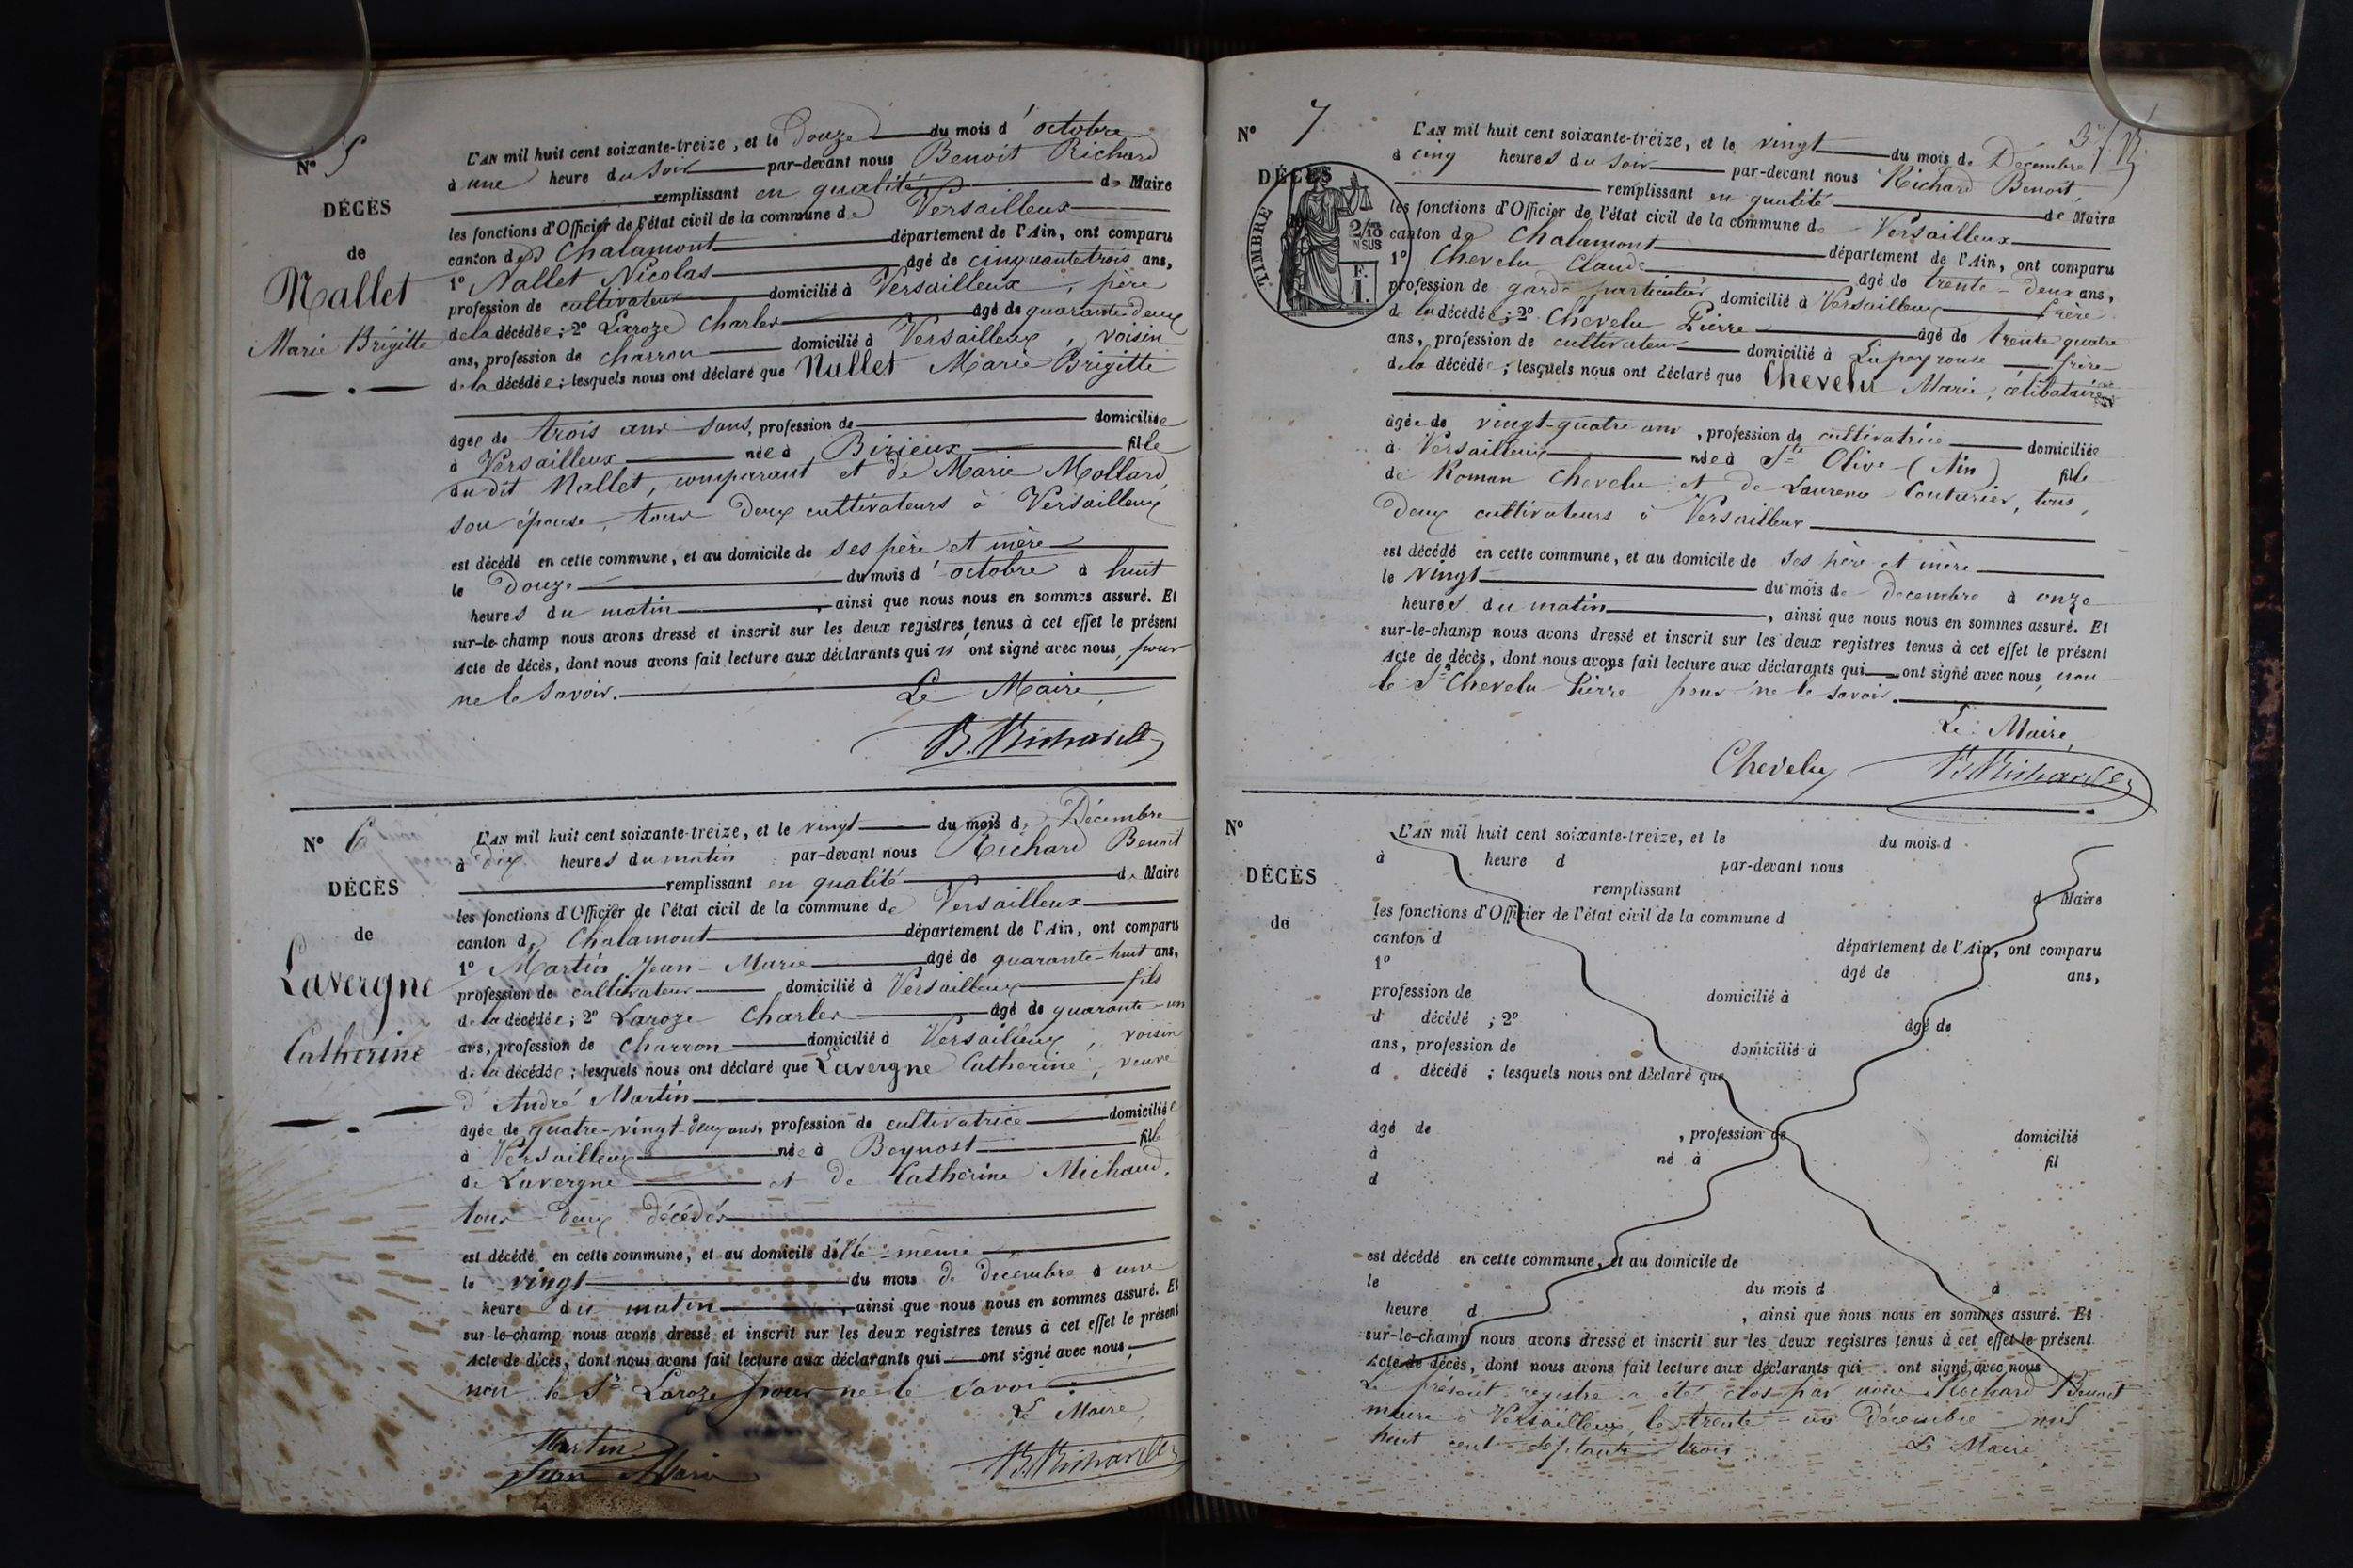 N° 5
DÉCÈS
de
Nallet
Marie Brigitte
L'AN mil huit cent soixante-treize, et le Douze du mois d'octobre
à une heure du soir par-devant nous Benoit Richard
remplissant en qualité de Maire
les fonctions d'Officier de l'état civil de la commune de Versailleux
canton de Chalamont département de l'Ain, ont comparu
1° Nallet Nicolas âgé de cinquante trois ans,
profession de cultivateur domicilié à Versailleux, père
de la décédée; 2° Laroze Charles âgé de quarante deux
ans, profession de charron domicilié à Versailleux, voisin
de la décédée; lesquels nous ont déclaré que Nallet Marie Brigitte
âgée de trois ans sans, profession de domiciliée
à Versailleux née à Birieux fille
du dit Nallet, comparant et de Marie Mollard,
son épouse, tous deux cultivateurs à Versailleux
est décédé en cette commune, et au domicile de ses père et mère
le Douze du mois d'octobre à huit
heures du matin, ainsi que nous nous en sommes assuré. Et
sur-le-champ nous avons dressé et inscrit sur les deux registres tenus à cet effet le présent
Acte de décès, dont nous avons fait lecture aux déclarants qui n'ont signé avec nous, pour
ne le savoir.
Le Maire,
B. Richard
N° 6
DÉCÈS
de
Lavergne
Catherine
L'AN mil huit cent soixante-treize, et le vingt du mois de Décembre
à dix heures du matin par-devant nous Richard Benoit
remplissant en qualité de Maire
les fonctions d'Officier de l'état civil de la commune de Versailleux
canton de Chalamont département de l'Ain, ont comparu
1° Martin Jean-Marie âgé de quarante-huit ans,
profession de cultivateur domicilié à Versailleux fils
de la décédée; 2° Laroze Charles âgé de quarante-un
ans, profession de charron domicilié à Versailleux, voisin
de la décédée; lesquels nous ont déclaré que Lavergne Catherine, veuve
d'André Martin
âgée de quatre-vingt-deux ans, profession de cultivatrice domiciliée
à Versailleux née à Beynost fille
de Lavergne et de Catherine Michaud,
tous deux décédés
est décédé en cette commune, et au domicile d'elle-même
le vingt du mois de décembre à une
heure du matin, ainsi que nous nous en sommes assuré. Et
sur-le-champ nous avons dressé et inscrit sur les deux registres tenus à cet effet le présent
Acte de décès, dont nous avons fait lecture aux déclarants qui ont signé avec nous,
non le Sr Laroze pour ne le savoir
Le Maire,
Martin
Jean Marie
B. Richard
37
N° 7
DÉCÈS
TIMBRE
2/10
EN SUS
F.
I.
L'AN mil huit cent soixante-treize, et le vingt du mois de Décembre
à cinq heures du soir par-devant nous Richard Benoit,
remplissant en qualité de Maire
les fonctions d'Officier de l'état civil de la commune de Versailleux
canton de Chalamont département de l'Ain, ont comparu
1° Chevelu Claude âgé de trente-deux ans,
profession de garde particulier domicilié à Versailleux frère
de la décédée; 2° Chevelu Pierre âgé de trente quatre
ans, profession de cultivateur domicilié à Lapeyrouse frère
de la décédée; lesquels nous ont déclaré que Chevelu Marie, célibataire
âgée de vingt-quatre ans, profession de cultivatrice domiciliée
à Versailleux née à Ste Olive (Ain) fille
de Roman Chevelu et de Laurence Couturier, tous
deux cultivateurs à Versailleux
est décédé en cette commune, et au domicile de ses père et mère
le vingt du mois de décembre à onze
heures du matin, ainsi que nous nous en sommes assuré. Et
sur-le-champ nous avons dressé et inscrit sur les deux registres tenus à cet effet le présent
Acte de décès, dont nous avons fait lecture aux déclarants qui ont signé avec nous, non
le Sr Chevelu Pierre pour ne le savoir.
Le Maire,
Chevelu
B. Richard
N°
DÉCÈS
de
L'AN mil huit cent soixante-treize, et le du mois d
à heure d par-devant nous
remplissant d Maire
les fonctions d'Officier de l'état civil de la commune d
canton d département de l'Ain, ont comparu
1° âgé de ans,
profession de domicilié à
d décédé ; 2° âgé de
ans, profession de domicilié à
d décédé ; lesquels nous ont déclaré que
âgé de , profession de domicilié
à né à fil
d
est décédé en cette commune, et au domicile de
le du mois d à
heure d , ainsi que nous nous en sommes assuré. Et
sur-le-champ nous avons dressé et inscrit sur les deux registres tenus à cet effet le présent
Acte de décès, dont nous avons fait lecture aux déclarants qui ont signé avec nous
Le présent registre a été clos par nous Richard Benoit
maire à Versailleux, le trente-un Décembre mil
huit cent septante trois
Le Maire